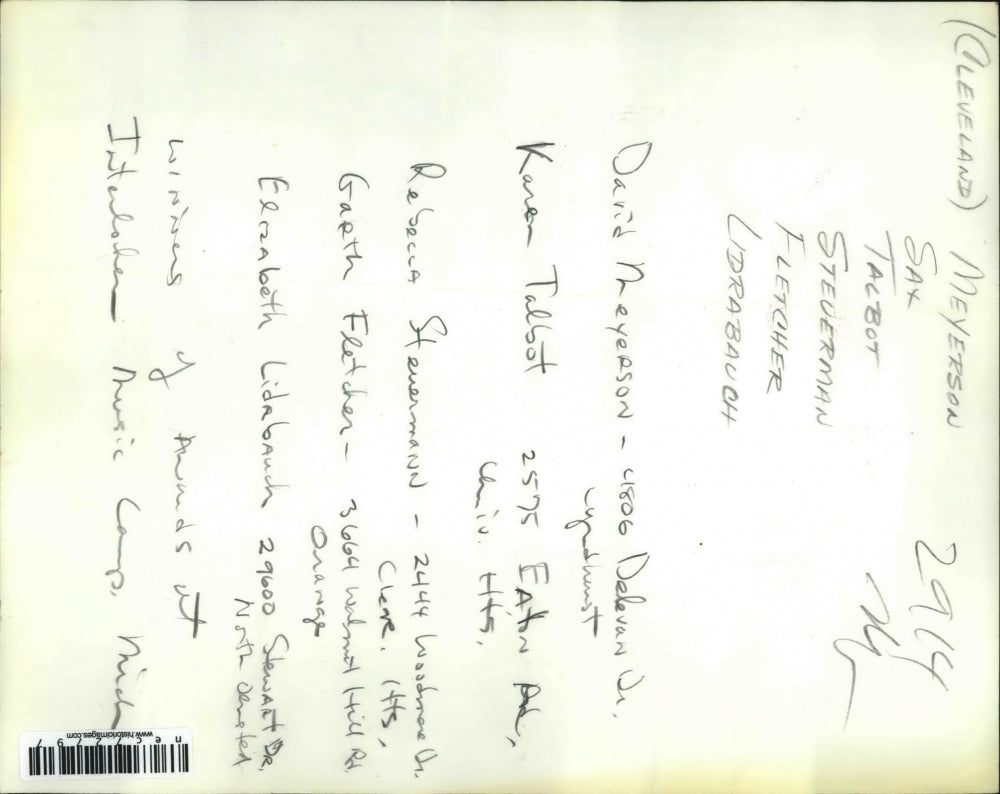 (CLEVELAND) MEYERSON 2914
SAX
TALBOT
STEUERMAN
FLETCHER
LIDRABAUCH
David Meyerson - 4806 Delevan Dr.
Lyndhurst
Karen Talbot 2575 Eaton Rd.,
Univ. Hts.
Rebecca Steuermann - 2444 Woodmere Dr.
Cleve. Hts.
Garth Fletcher - 3664 Walnut Hill Rd.
Orange
Elizabeth Lidrbauch 29600 Stewart Dr.
North Olmsted
winners of Awards at
Interlochen Music Camp, Mich
www.historicimages.com
nec72797